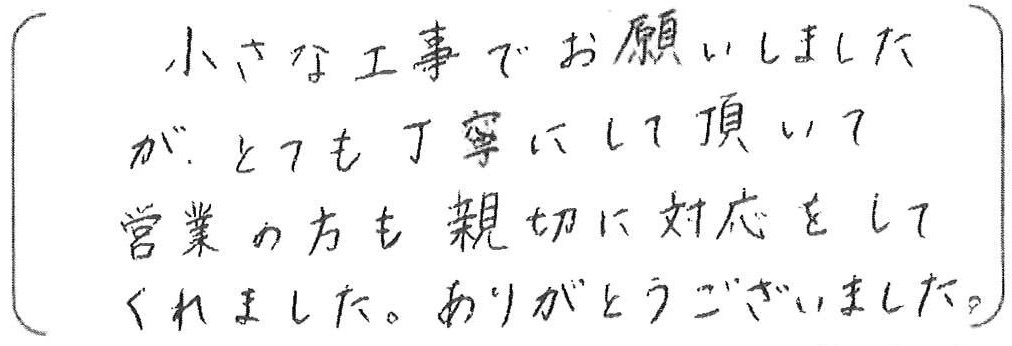 小さな工事でお願いしました
が、とても丁寧にして頂いて
営業の方も親切に対応をして
くれました。ありがとうございました。